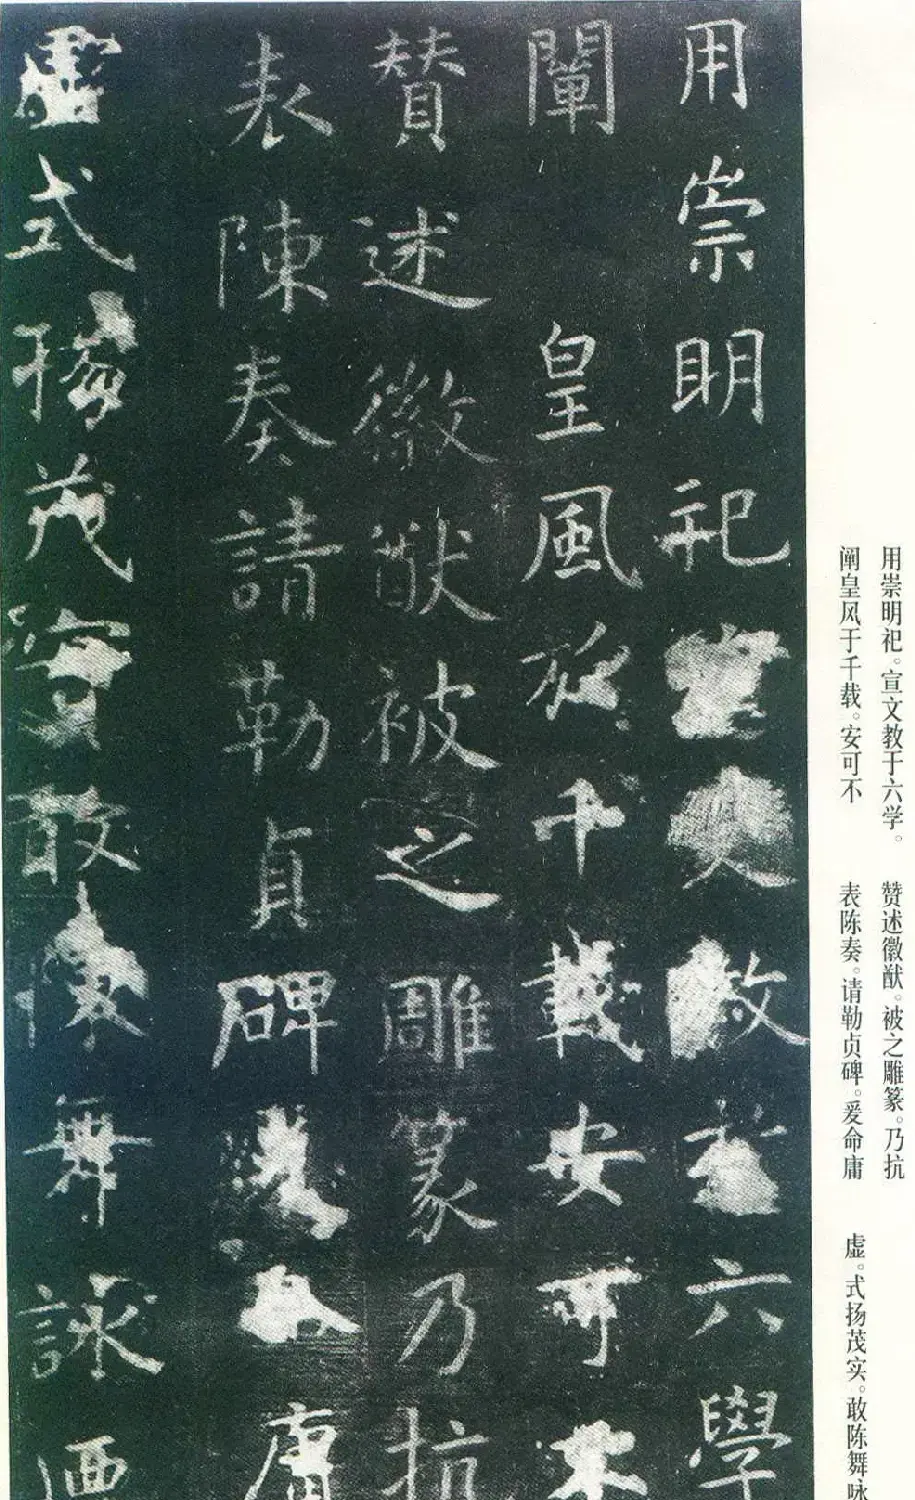 用崇明祀宣文教於六學
闡皇風於千載安可不
贊述徽猷被之雕篆乃抗
表陳奏請勒貞碑爰命庸
虛式揚茂實敢陳舞詠迺
用崇明祀。宣文教于六学。
阐皇风于千载。安可不
赞述徽猷。被之雕篆。乃抗
表陈奏。请勒贞碑。爰命庸
虚。式扬茂实。敢陈舞咏